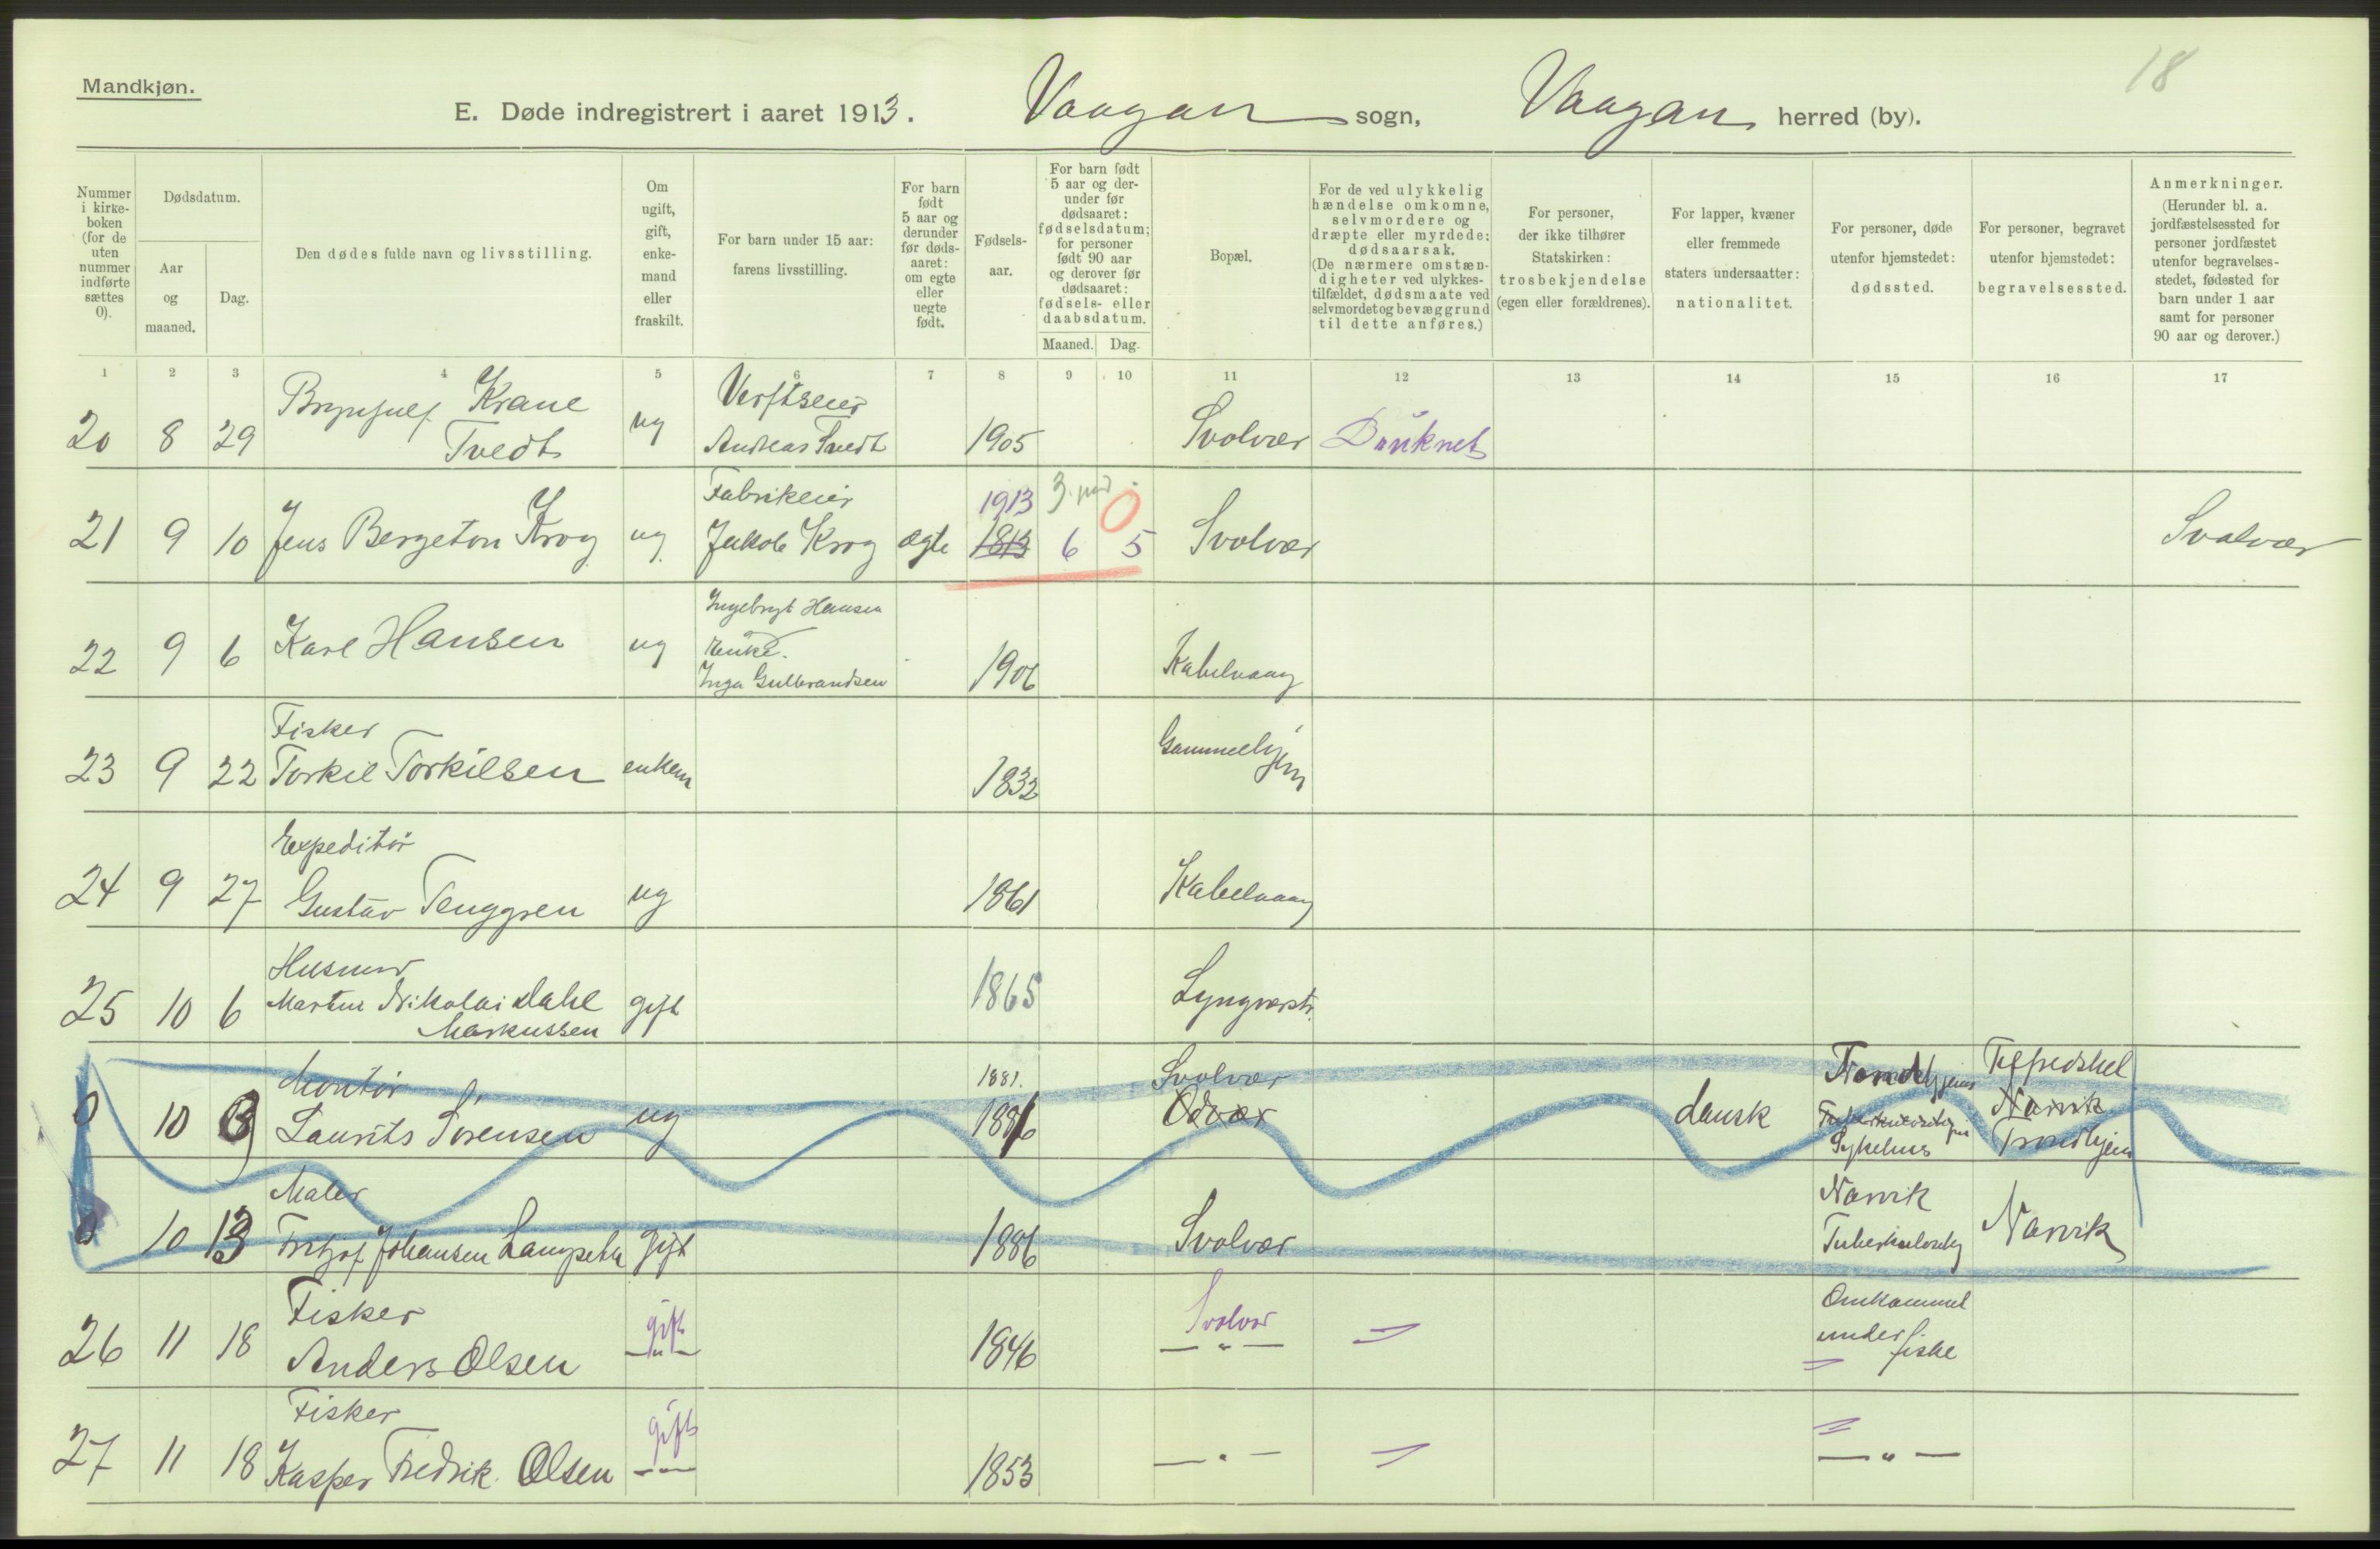 18
Mandkjøn.
E. Døde indregistrert i aaret 1913. Vaagan sogn, Vaagan herred (by).
Nummer i kirke-boken (for de uten nummer indførte sættes 0).
Dødsdatum.
Aar og maaned.
Dag.
Den dødes fulde navn og livsstilling.
Om ugift, gift, enke-mand eller fraskilt.
For barn under 15 aar: farens livsstilling.
For barn født 5 aar og derunder før døds-aaret: om egte eller uegte født.
Fødsels-aar.
For barn født 5 aar og der-under før dødsaaret: fødselsdatum; for personer født 90 aar og derover før dødsaaret: fødsels- eller daabsdatum.
Maaned. Dag.
Bopæl.
For de ved ulykkelig hændelse omkomne, selvmordere og dræpte eller myrdede: dødsaarsak. (De nærmere omstæn-digheter ved ulykkes-tilfældet, dødsmaate ved selvmordet og bevæggrund til dette anføres.)
For personer, der ikke tilhører Statskirken: trosbekjendelse (egen eller forældrenes).
For lapper, kvæner eller fremmede staters undersaatter: nationalitet.
For personer, døde utenfor hjemstedet: dødssted.
For personer, begravet utenfor hjemstedet: begravelsessted.
Anmerkninger. (Herunder bl. a. jordfæstelsessted for personer jordfæstet utenfor begravelses-stedet, fødested for barn under 1 aar samt for personer 90 aar og derover.)
1 2 3 4 5 6 7 8 9 10 11 12 13 14 15 16 17
Brynjulf Krane Verftseier
20 8 29 Tvedt ug Andreas Tvedt 1905 Svolvær Druknet
Fabrikeier 1913 3. md
0
21 9 10 Jens Bergeton Krog ug. Jakob Krog ægte 1813 6 5 Svolvær Svolvær
Ingebrigt Hansen
22 9 6 Karl Hansen ug Enke. 1906 Kabelvaag
Inga Gulbrandsen
Fisker
23 9 22 Torkil Torkilsen enkem 1832 Gammelhjem
Expeditør
24 9 27 Gustav Tenggren ug 1861 Kabelvaag
Husmor
25 10 6 Martin Nikolai Dahl gift 1865 Lyngværstr.
Markussen
Montør 1881. Svolvær Trondhjems Tilfredshel
0 10 8 Laurits Sørensen ug 1886 Odvær dansk Tuberkulosehjem Narvik
Sykehus Trondhjem
Maler Narvik
0 10 13 Fritjof Johansen gift 1886 Svolvær Tuberkulosehj Narvik
Fisker gift Svolvær Omkommet
26 11 18 Anders Olsen — „ — 1846 — „ — under fiske
Fisker gift
27 11 18 Kasper Fredrik Olsen — „ — 1853 — „ — — „ —